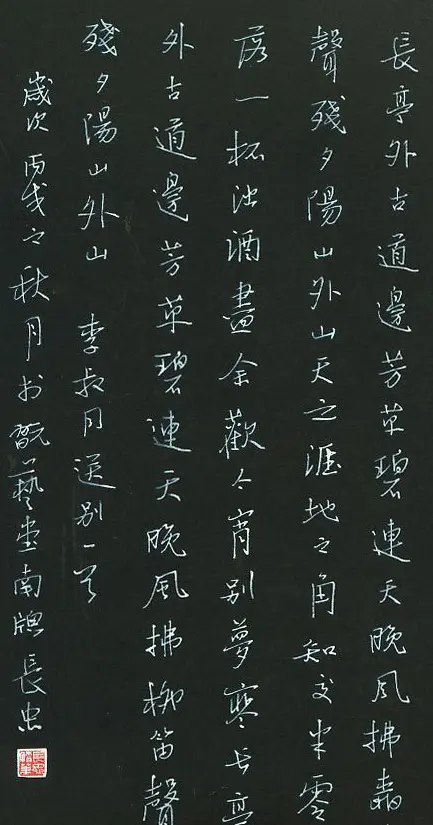 長亭外古道邊芳草碧連天晚風拂
聲殘夕陽山外山天之涯地之角知交半零
落一杯浊酒盡余歡今宵别夢寒長亭
外古道邊芳草碧連天晚風拂柳笛聲
殘夕陽山外山 李叔同送别一首
歲次丙戌之秋月於翫藝堂南牕長忠